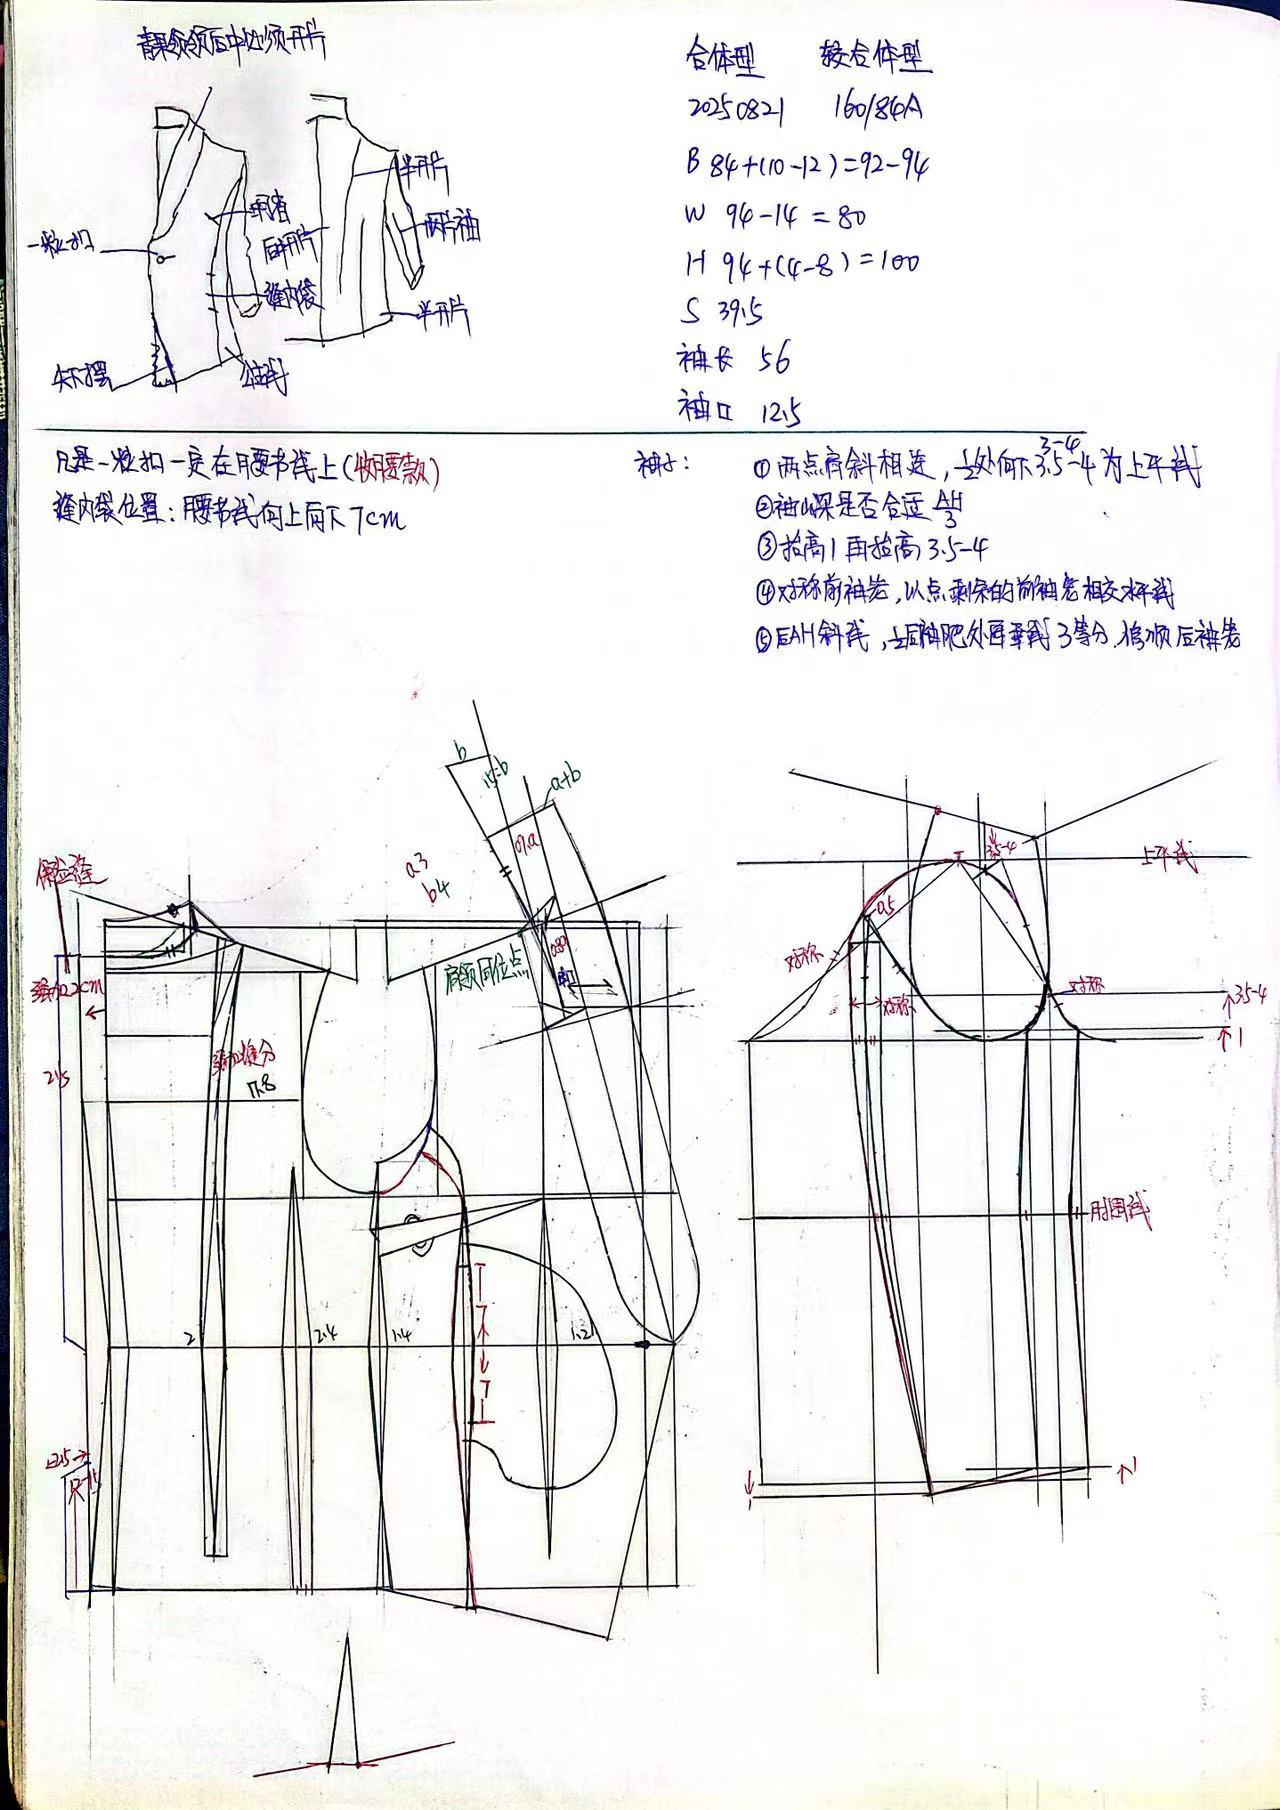 青果领领后中必须开片
一粒扣
尖下摆
后开片
缝内袋
公主线
半开片
两片袖
半开片
合体型 较合体型
20250821 160/84A
B 84+(10-12)=92-94
W 94-14=80
H 94+(4-8)=100
S 39.5
袖长 56
袖口 12.5
凡是一粒扣一定在腰节线上(收腰款)
缝内袋位置:腰节线向上向下7cm
袖子:
①两点肩斜相连,½处向下3.5-4为上平线
3-4
②袖山深是否合适 AH/3
③抬高1再抬高3.5-4
④对称前袖笼,以点剩余的前袖笼相交水平线
⑤后AH斜线,½后袖肥处画垂线3等分,修顺后袖笼
b
1.5=b
a+b
a
a3
b4
肩颈同位点
2cm
21.5
17.8
2
2.4
1.4
1.2
7
7
2.5
3.5-4
上平线
0.5
对称
对称
对称
↑3.5-4
↑1
肘围线
↑1
↓1